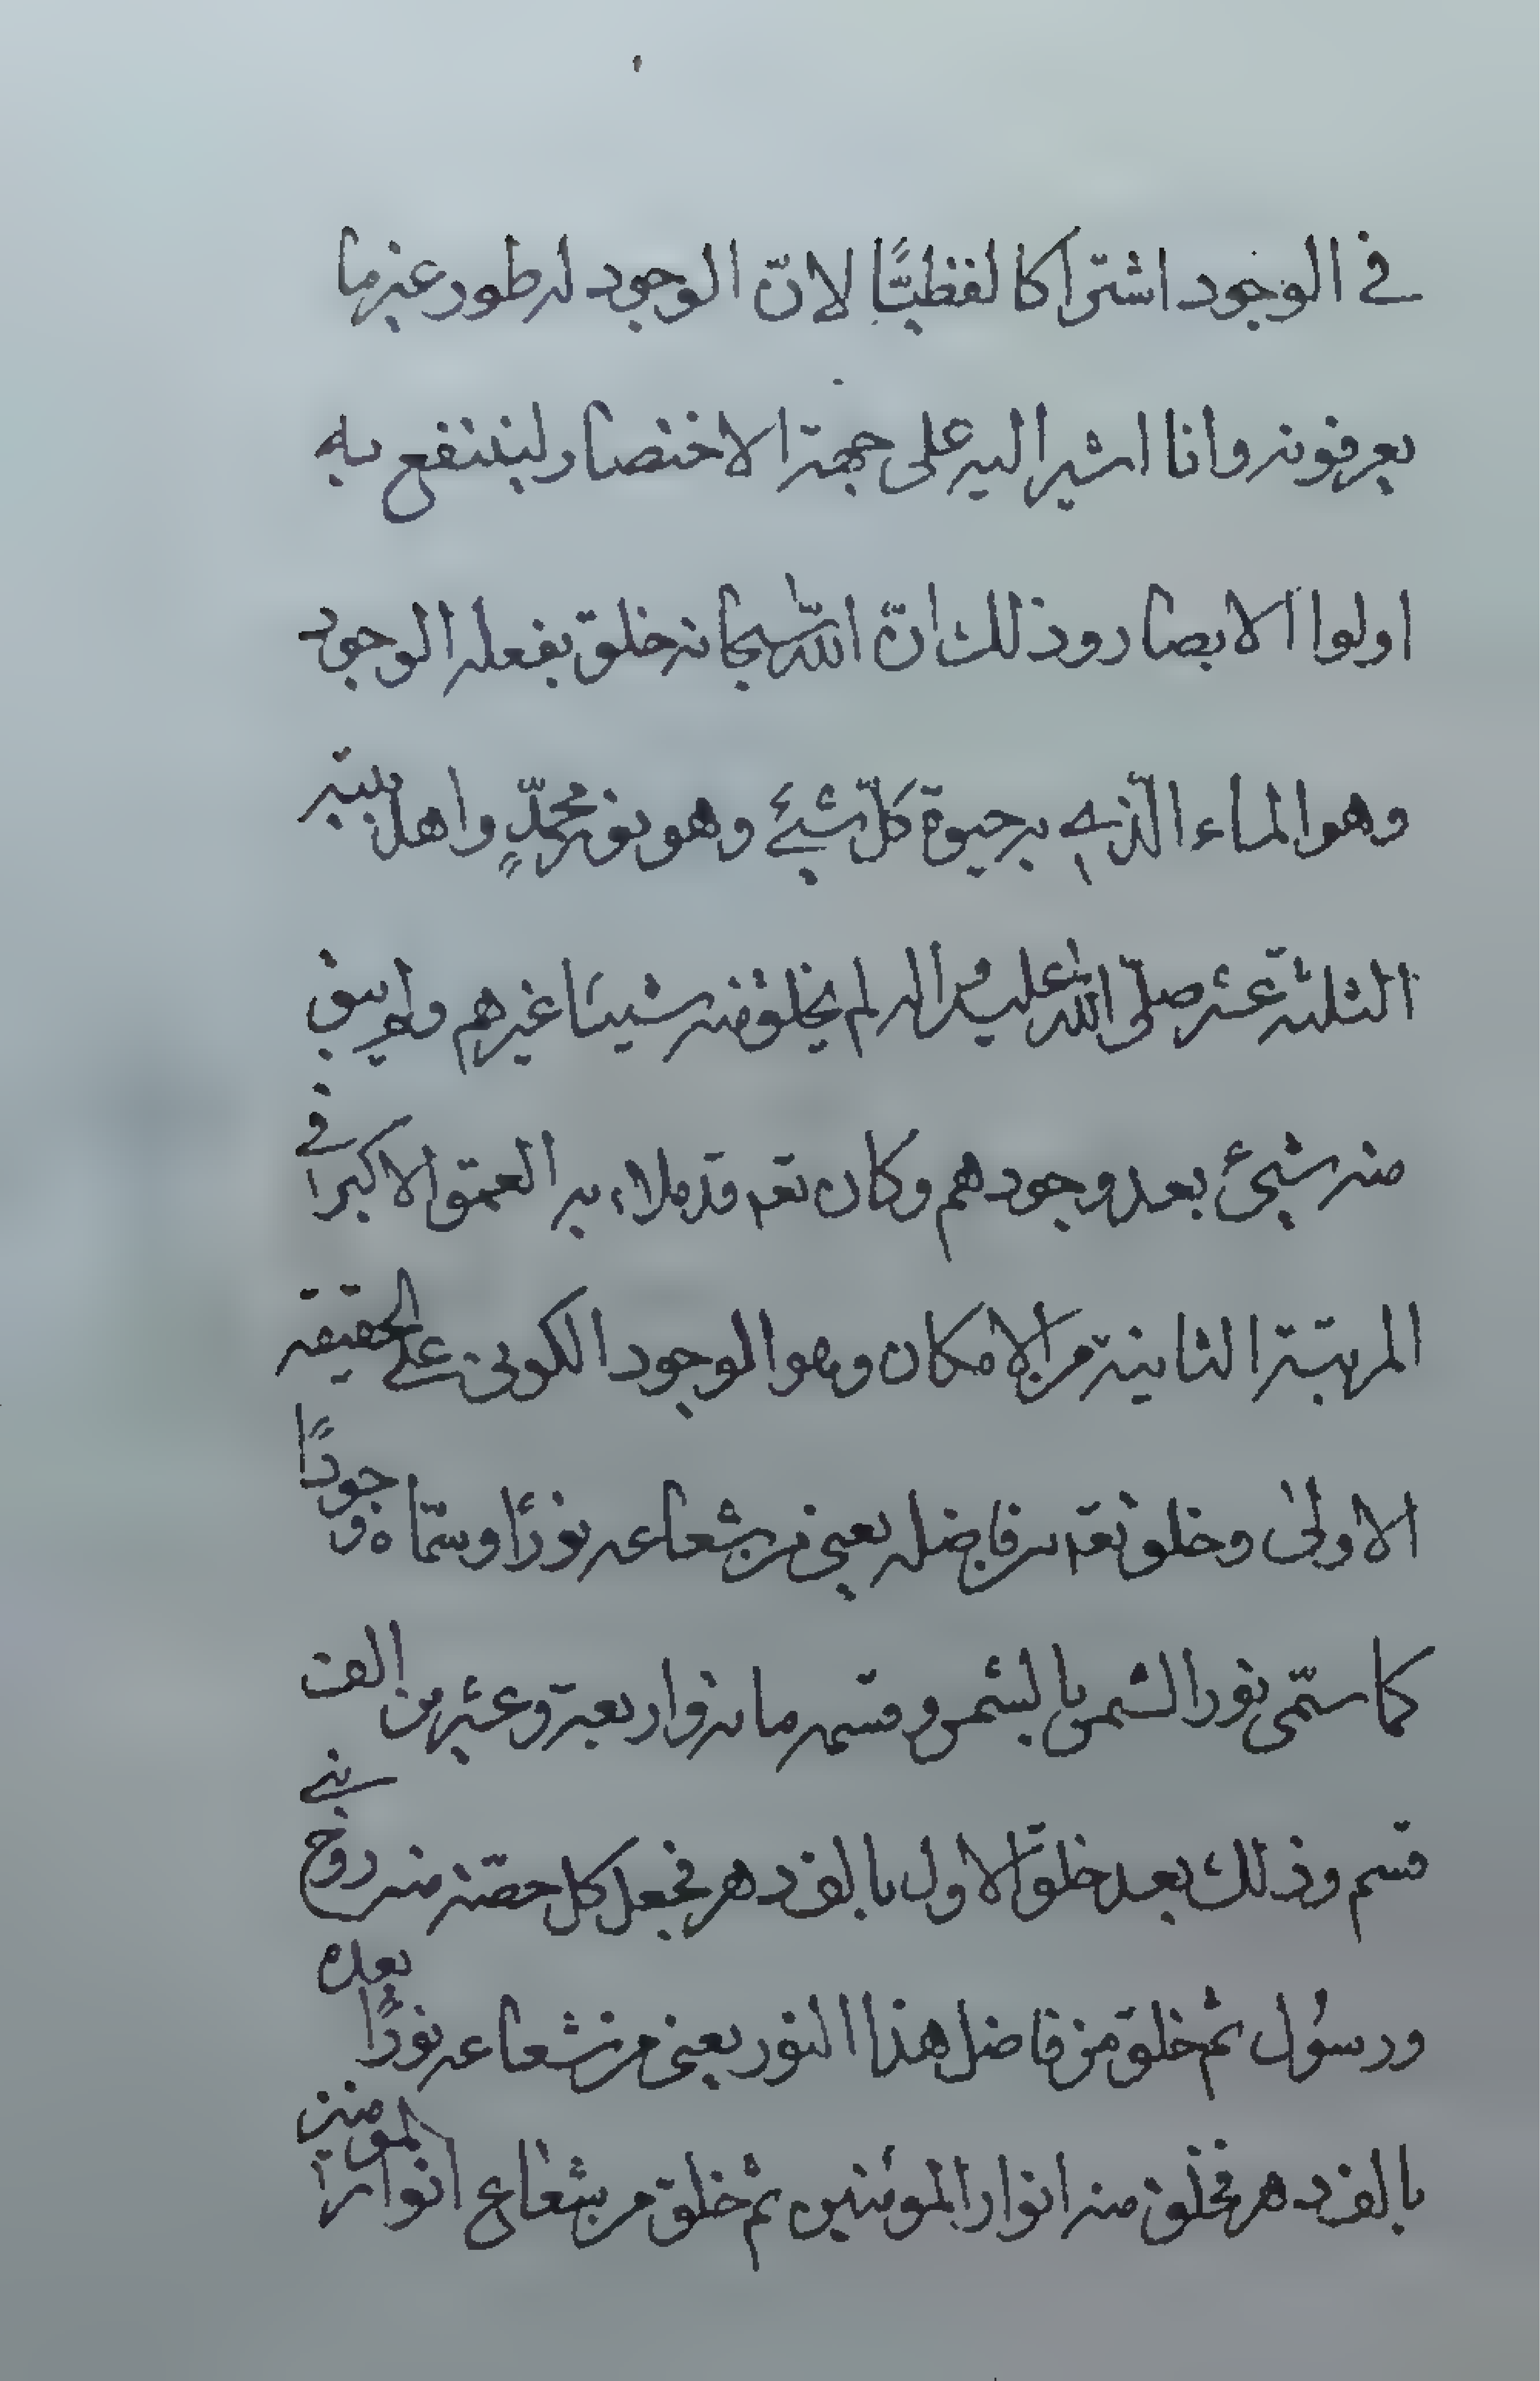 في الوجود اشتراكا لفظيًّا لانّ الوجود له طور غير ما
يعرفونه وانا اشير اليه على جهة الاختصار لينتفع به
اولوا الابصار وذلك انّ اللّه سبحانه خلق بفعله الوجود
وهو الماء الّذي به حيوة كلّ شيئ وهو نور محمّدٍ واهل بيته
الثلثة عشر صلّى اللّه عليه واله لم يخلق منه شيئا غيرهم ولم يبق
منه شيئ بعد وجودهم وكان تعه قد ملاء به العمق الاكبر في
المرتبة الثانية من الامكان وهو الوجود الكوني على الحقيقة
الاولى وخلق تعه من فاضله يعني من شعاعه نورًا وسمّاه وجودًا
كما سمّى نور الشمس بالشمس وقسمه مائة واربعة وعشرين الف
قسم وذلك بعد خلق الاول بالف دهر فجعل كل حصّة منه روح نبي
ورسُول ثم خلق من فاضل هذا النور يعني من شعاعه نورًا بعده
بالف دهر فخلق منه انوار المؤمنين ثم خلق من شعاع انوار المومنين